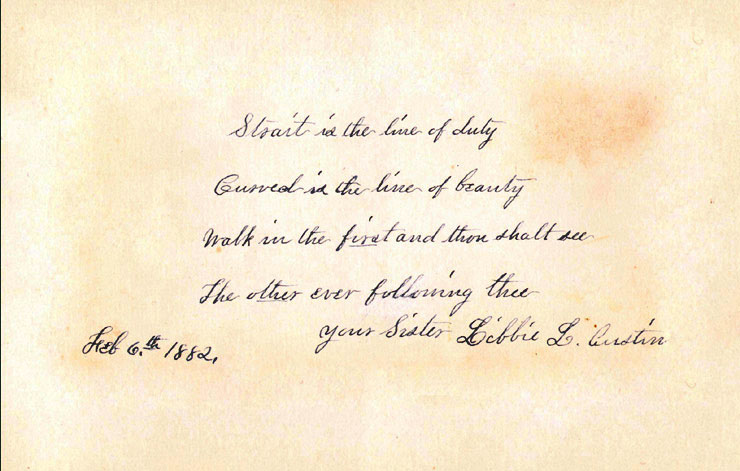 Strait is the line of duty
Curved is the line of beauty
Walk in the first and thou shalt see
The other ever following thee
Your Sister Libbie L. Austin
Feb 6.th 1882.